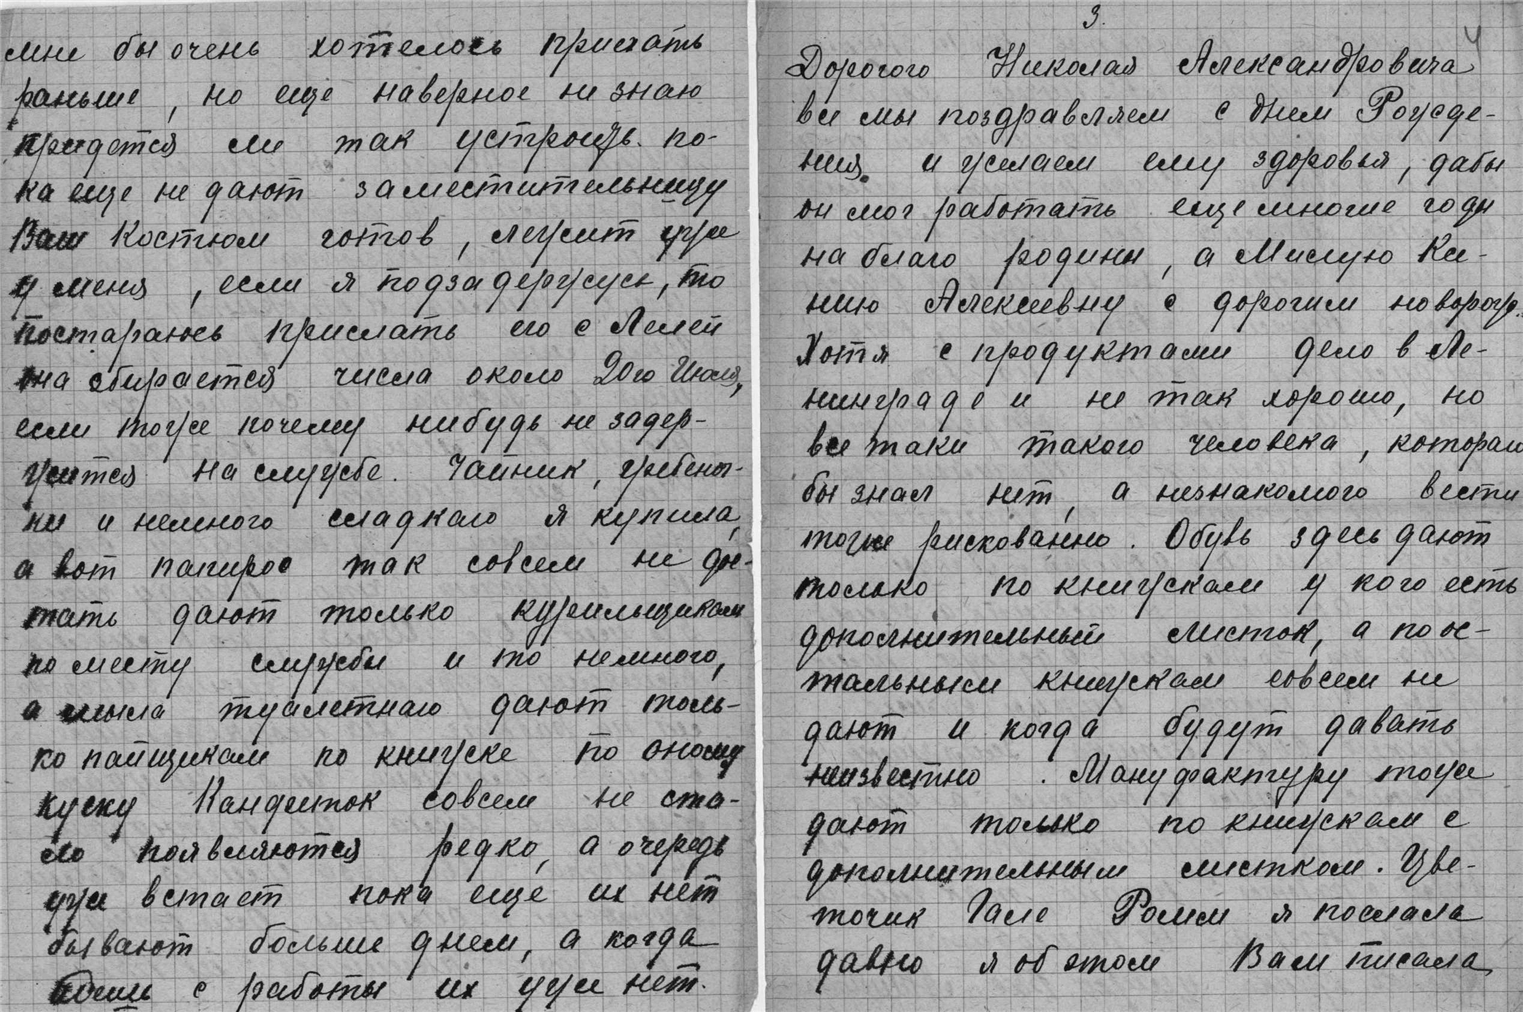 мне бы очень хотелось приехать
раньше, но еще наверное не знаю
придется ли так устроить. по-
ка еще не дают заместительницу
Ваш костюм готов, лежит уже
у меня, если я подзадержусь, то
постараюсь прислать его с Лелей
она сбирается числа около 20го Июля,
если тоже почему нибудь не задер-
жится на службе. Чайник, гребеноч-
ки и немного сладкаго я купила,
а вот папирос так совсем не дос-
тать дают только курильщикам
по месту службы и то немного,
а мыла туалетнаго дают толь-
ко пайщикам по книжке по одному
куску Кандейток совсем не ста-
ло появляются редко, а очередь
уже встает пока еще их нет
бывают больше днем, а когда
с работы их уже нет.
3.
4
Дорогого Николая Александровича
все мы поздравляем с днем Рожде-
ния. и желаем ему здоровья, дабы
он мог работать еще многие годы
на благо родины, а Милую Ке-
нию Алексеевну с дорогим новорож.
Хотя с продуктами дело в Ле-
нинграде и не так хорошо, но
все таки такого человека, которай
бы знал нет, а незнакомого вести
тоже рискованно. Обувь здесь дают
только по книжкам у кого есть
дополнительный листок, а по ос-
тальным книжкам совсем не
дают и когда будут давать
неизвестно. Мануфактуру тоже
дают только по книжкам с
дополнительным листком. Цве-
точик Гале Ромм я послала
давно я об этом Вам писала